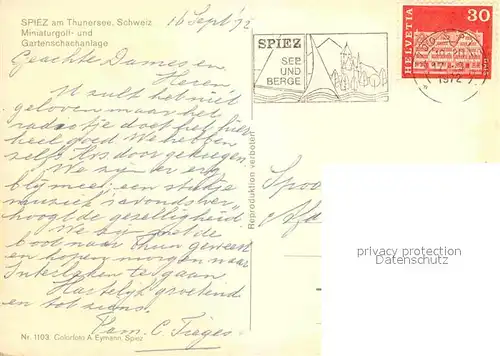 SPIEZ am Thunersee, Schweiz
Miniaturgolf- und
Gartenschachanlage
16 Sept '72
Geachte Dames en
Heren
U zult het niet
geloven maar het
radiotje doet het hier
heel goed We hebben
zelfs Ars door gekregen
We zijn er erg
blij mee, een stukje
muziek 's avonds ver
hoogt de gezelligheid
We zijn met de
boot naar Thun geweest
en hopen morgen naar
Interlaken te gaan
Hartelijk groetend
en tot ziens
Fam. C. Tieges
Nr. 1103 Colorfoto A. Eymann, Spiez
Reproduktion verboten
SPIEZ
SEE
UND
BERGE
1972
HELVETIA 30
Spoo
Afd
privacy protection
Datenschutz